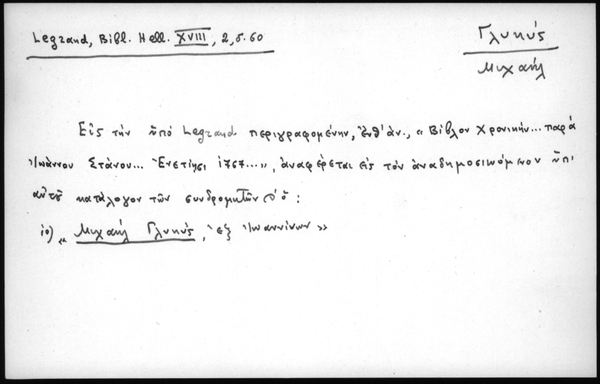 Legrand, Bibl. Hell. XVIII, 2, σ. 60
Γλυκύς
Μιχαήλ
Εἰς τὴν ὑπό Legrand περιγραφομένην, ἔνθ' ἀν., « Βίβλον Χρονικήν... παρά
Ἰωάννου Στάνου... Ἐνετίησι 1767... », ἀναφέρεται εἰς τὸν ἀναδημοσιευόμενον ὑπ'
αὐτοῦ κατάλογον τῶν συνδρομητῶν ὁ :
« Μιχαήλ Γλυκύς, ἐξ Ἰωαννίνων »